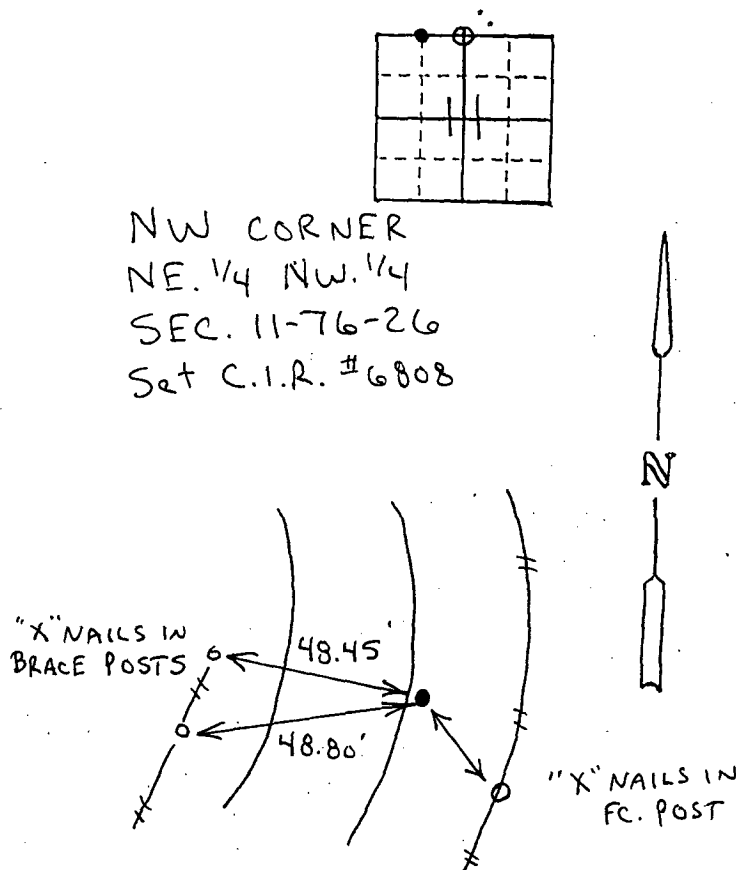 NW CORNER
NE. 1/4 NW. 1/4
SEC. 11-76-26
Set C.I.R. #6808
N
"X" NAILS IN
BRACE POSTS
48.45'
48.80'
"X" NAILS IN
FC. POST